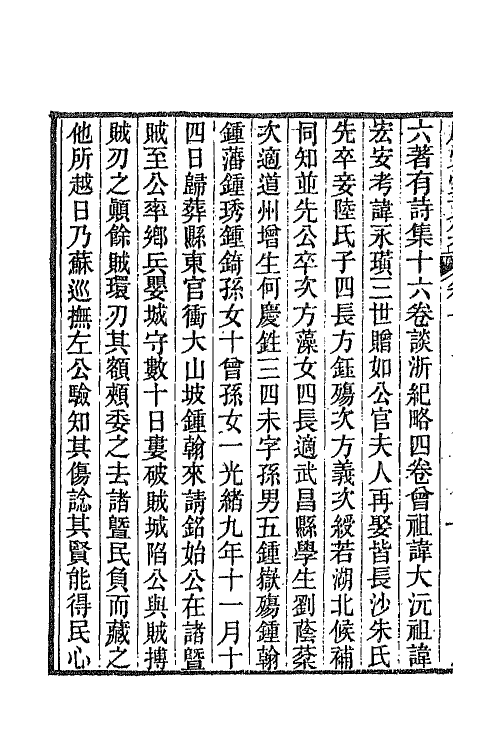 六著有詩集十六卷談浙紀略四卷曾祖諱大沅祖諱
宏安考諱永璜三世贈如公官夫人再娶皆長沙朱氏
先卒妾陸氏子四長方鈺殤次方義次綬若湖北候補
同知並先公卒次方藻女四長適武昌縣學生劉蔭棻
次適道州增生何慶銋三四未字孫男五鍾嶽殤鍾翰
鍾藩鍾琇鍾錡孫女十曾孫女一光緒九年十一月十
四日歸葬縣東官衝大山坡鍾翰來請銘始公在諸暨
賊至公率鄉兵嬰城守數十日婁破賊城陷公與賊搏
賊刃之顛餘賊環刃其額頰委之去諸暨民負而藏之
他所越日乃蘇巡撫左公驗知其傷諗其賢能得民心